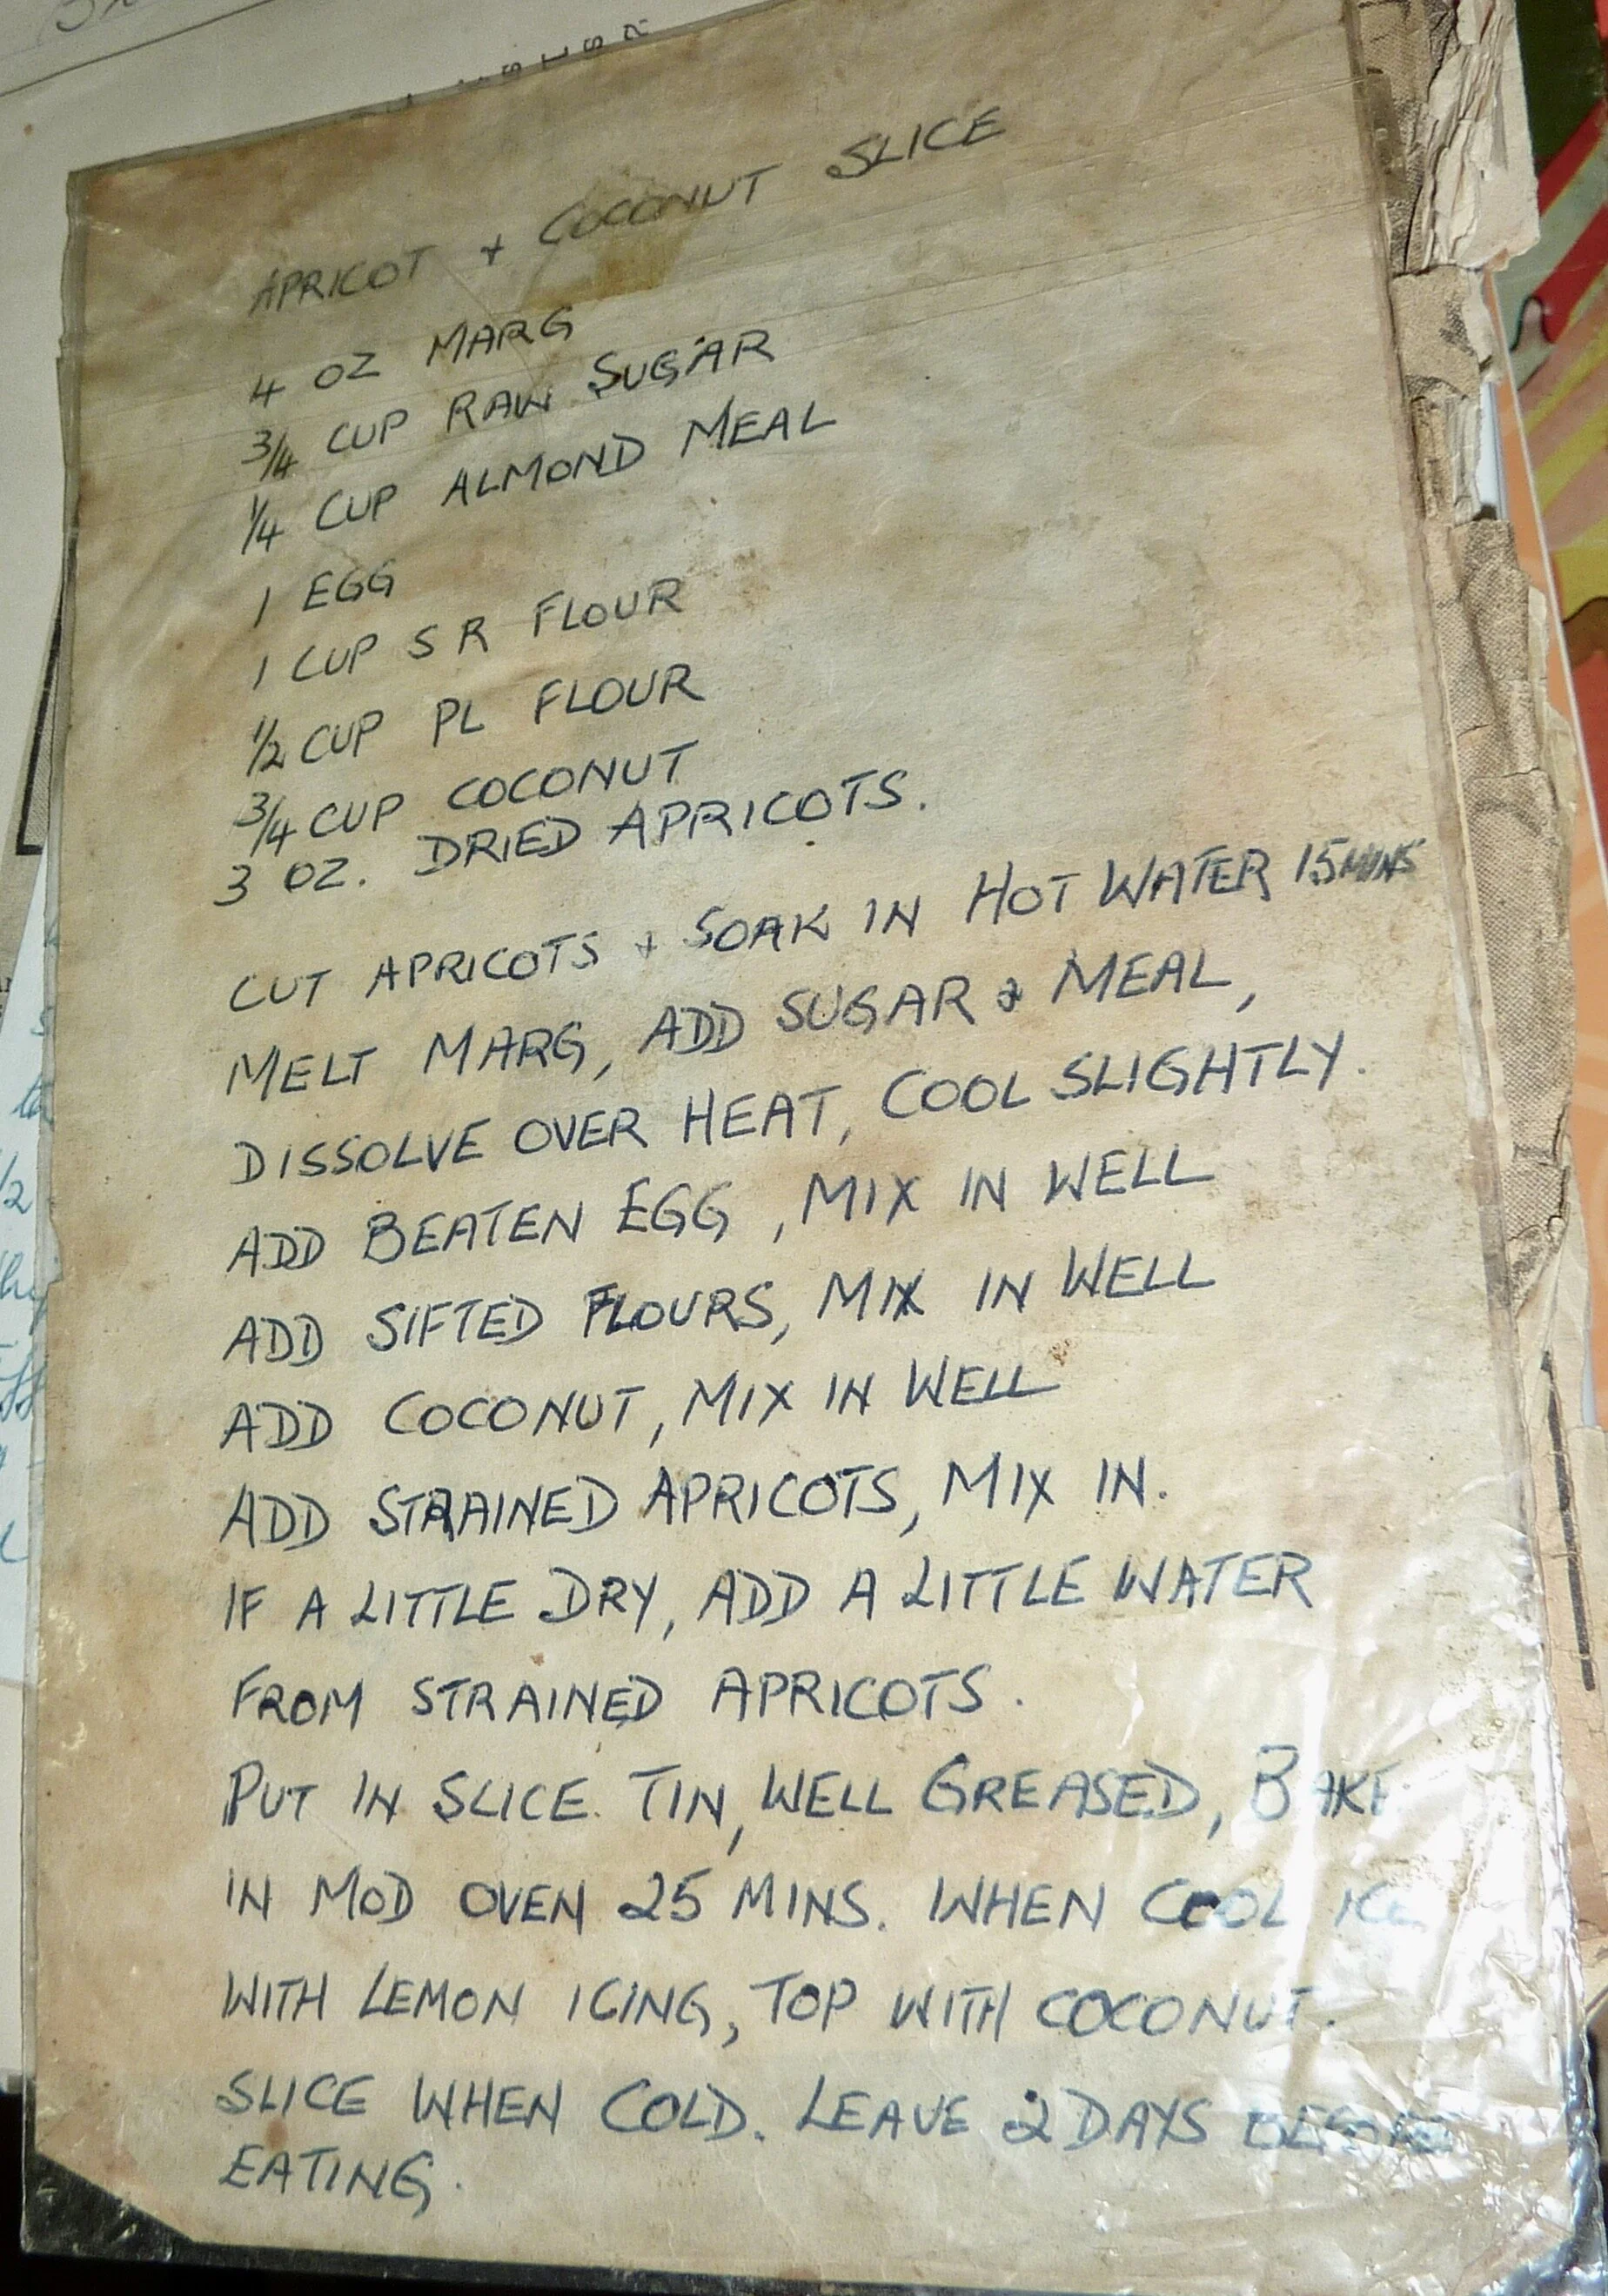 APRICOT + COCONUT SLICE
4 OZ MARG
3/4 CUP RAW SUGAR
1/4 CUP ALMOND MEAL
1 EGG
1 CUP S R FLOUR
1/2 CUP PL FLOUR
3/4 CUP COCONUT
3 OZ. DRIED APRICOTS.
CUT APRICOTS + SOAK IN HOT WATER 15 MINS
MELT MARG, ADD SUGAR & MEAL,
DISSOLVE OVER HEAT, COOL SLIGHTLY.
ADD BEATEN EGG, MIX IN WELL
ADD SIFTED FLOURS, MIX IN WELL
ADD COCONUT, MIX IN WELL
ADD STRAINED APRICOTS, MIX IN.
IF A LITTLE DRY, ADD A LITTLE WATER
FROM STRAINED APRICOTS.
PUT IN SLICE TIN, WELL GREASED, BAKE
IN MOD OVEN 25 MINS. WHEN COOL ICE
WITH LEMON ICING, TOP WITH COCONUT.
SLICE WHEN COLD. LEAVE 2 DAYS BEFORE
EATING.